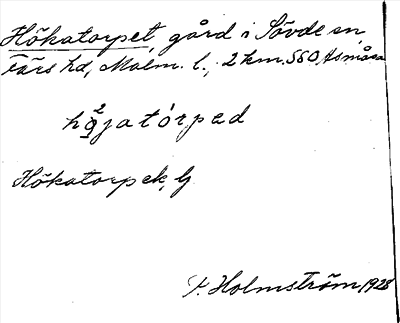 Hökatorpet, gård i Sövde sn,
Färs hd, Malm. l., 2 km. SSO Åsmåsa
Hökatorpek, G
P. Holmström 1928